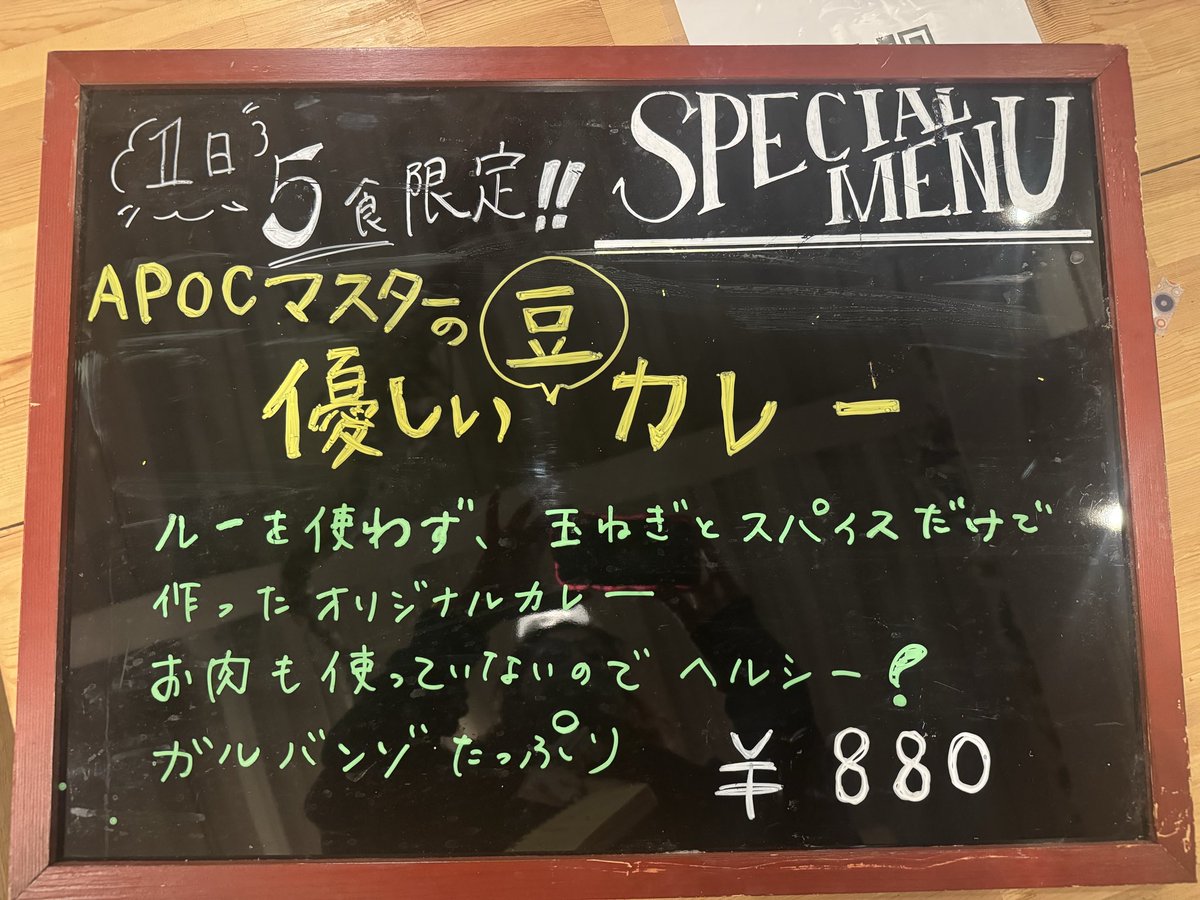 1日5食限定!!
SPECIAL
MENU
APOCマスターの
優しい豆カレー
ルーを使わず、玉ねぎとスパイスだけで
作ったオリジナルカレー
お肉も使っていないのでヘルシー!
ガルバンゾたっぷり
¥880